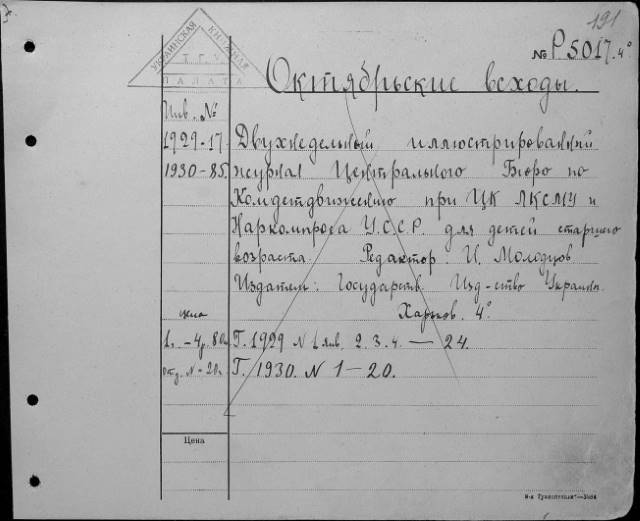 191
УКРАИНСКАЯ КНИЖНАЯ
ПАЛАТА
№ Р5017. 4°
Октябрьские всходы.
Инв. №
1929-17.
1930-85.
Двухнедельный иллюстрированный
журнал Центрального Бюро по
Комдетдвижению при ЦК ЛКСМУ и
Наркомпроса У.С.С.Р. для детей старшего
возраста. Редактор: И. Молодцов
Издатель: Государств. Изд-ство Украины.
Харьков. 4°
цена
1г. - 4р. 80к.
Г. 1929 N 1 янв. 2. 3. 4. — 24.
отд. N - 20к.
Г. 1930. N 1 — 20.
Цена